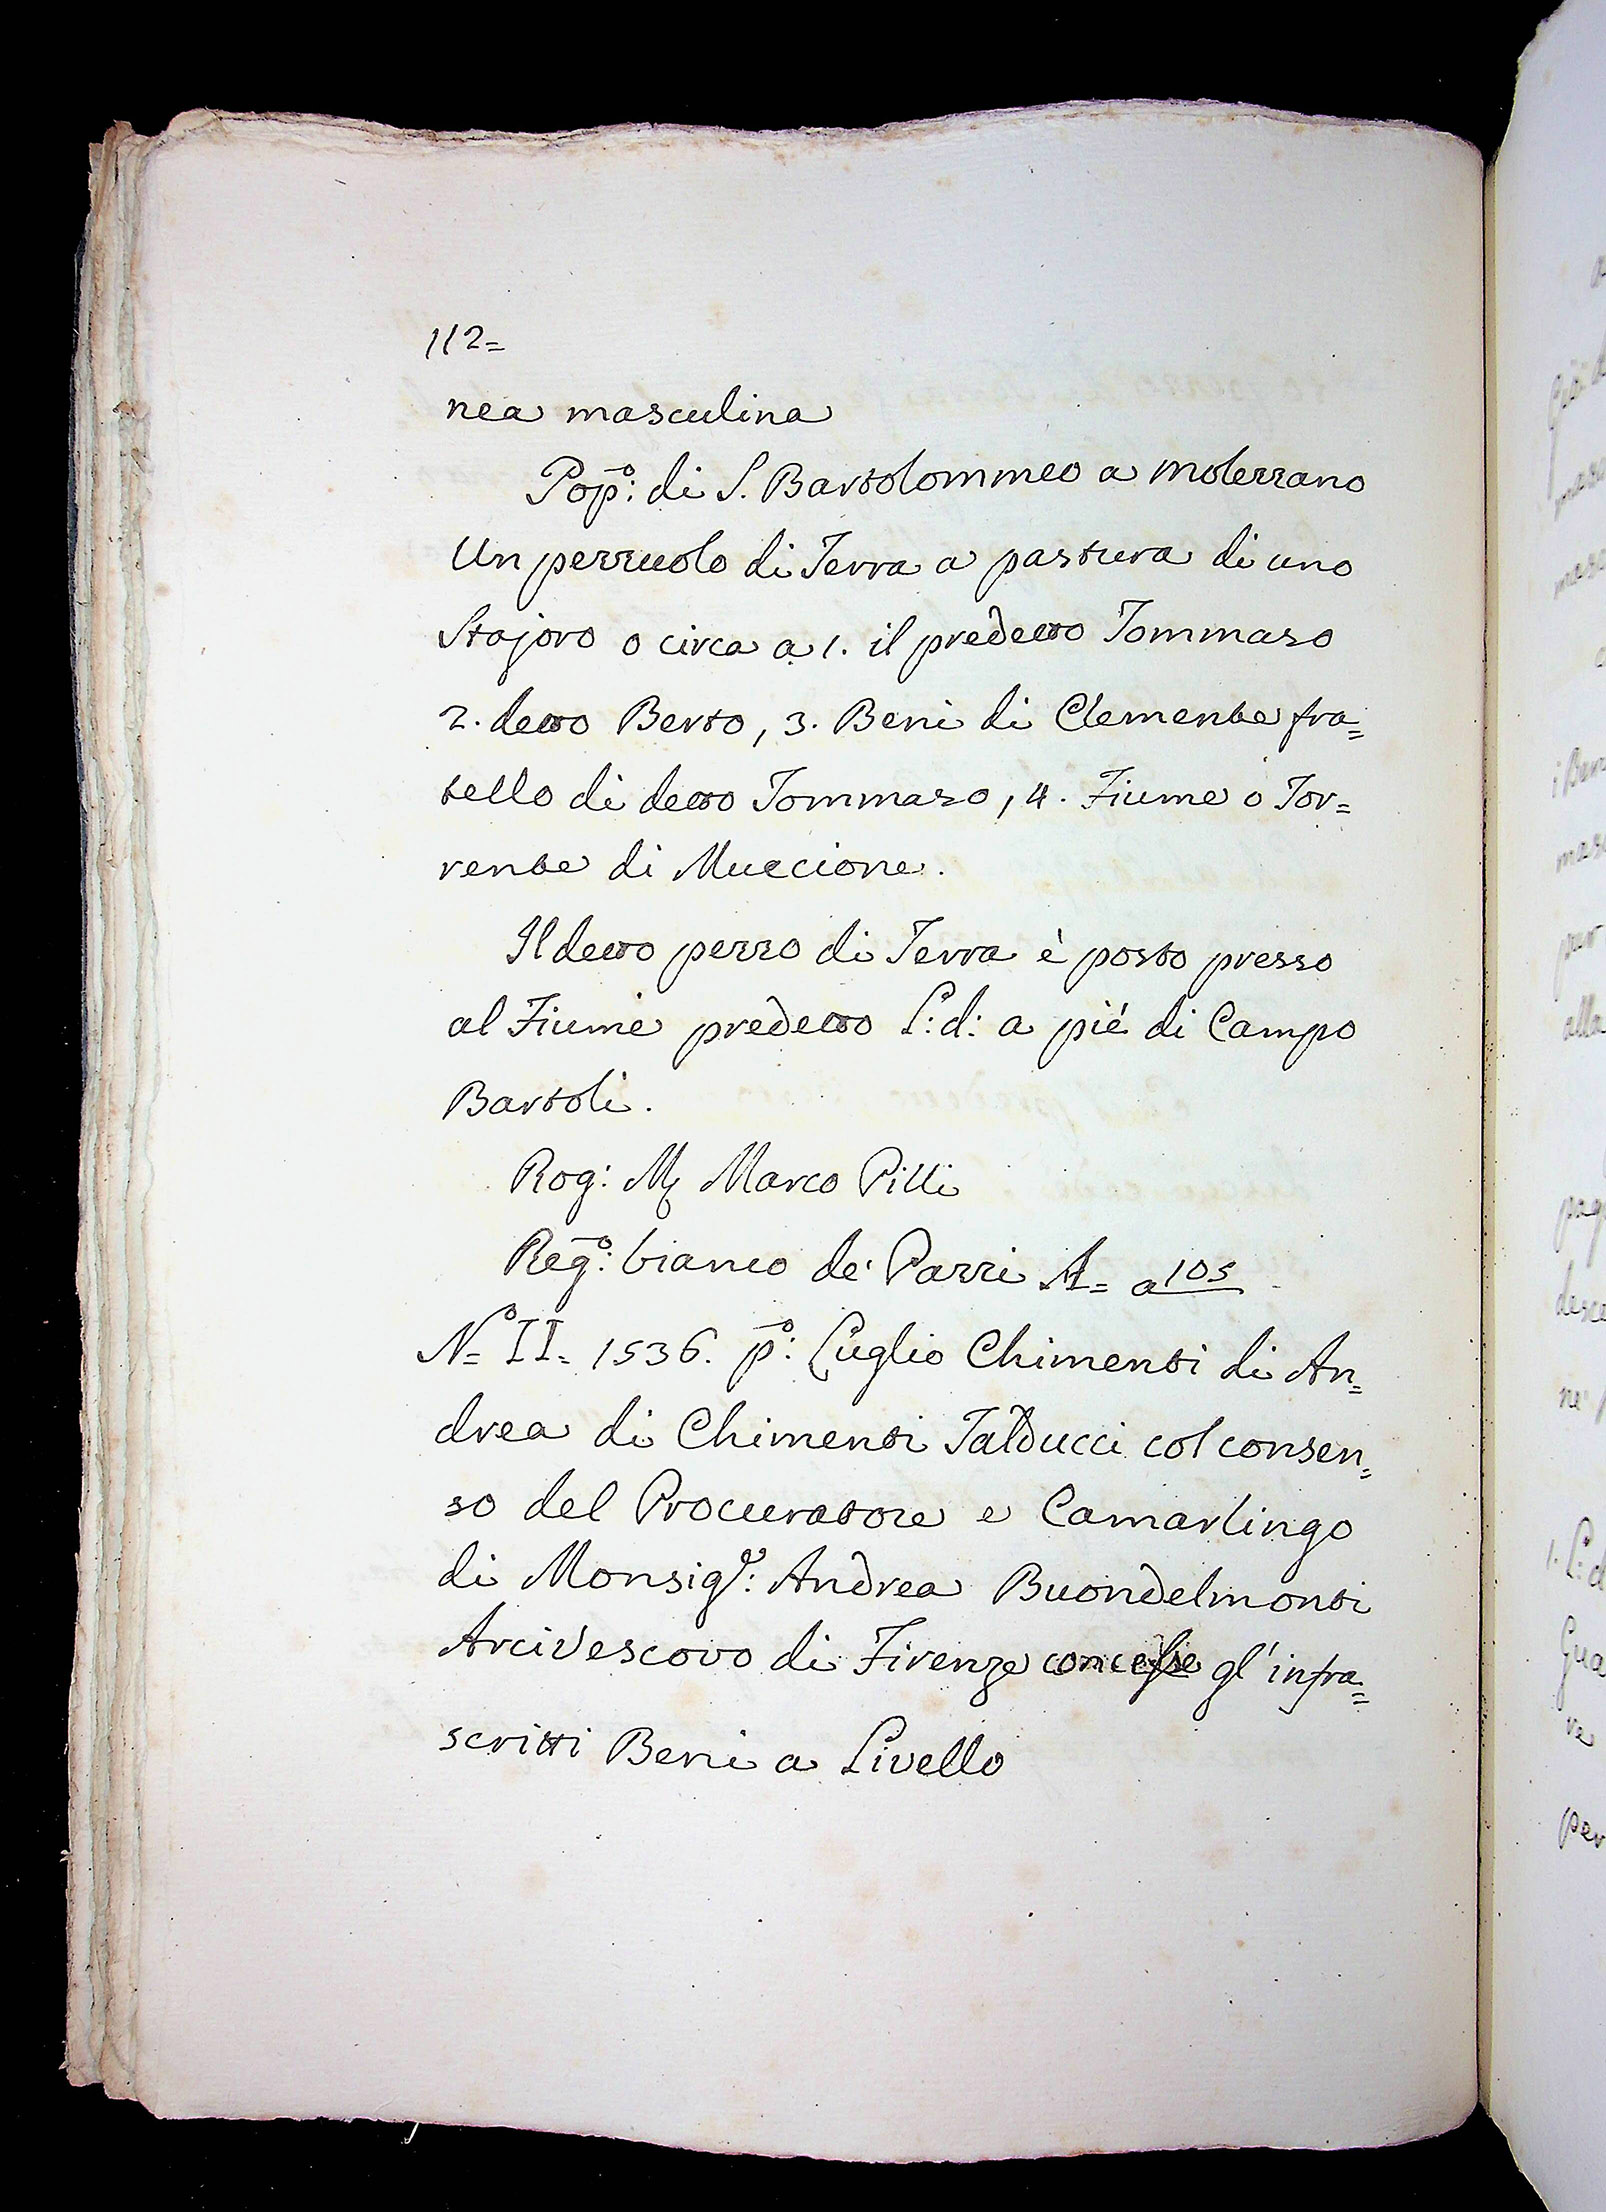 112=
nea masculina
Pop:º di S. Bartolommeo a molezzano
Un pezzuolo di Terra a pastura di uno
Stajoro o circa a 1. il predetto Tommaso
2. detto Berto, 3. Beni di Clemente fra=
tello di detto Tommaso, 4. Fiume o Tor=
rente di Muccione.
Il detto pezzo di Terra è posto presso
al Fiume predetto L: d: a piè di Campo
Bartoli.
Rog: Mʃ Marco Pilli
Reg:º bianco de' Pazzi A= a 105
Nº= II= 1536. p:º Luglio Chimenti di An=
drea di Chimenti Talducci col consen=
so del Procuratore e Camarlingo
di Monsigʳ: Andrea Buondelmonti
Arcivescovo di Firenze concesse gl' infra=
scritti Beni a Livello